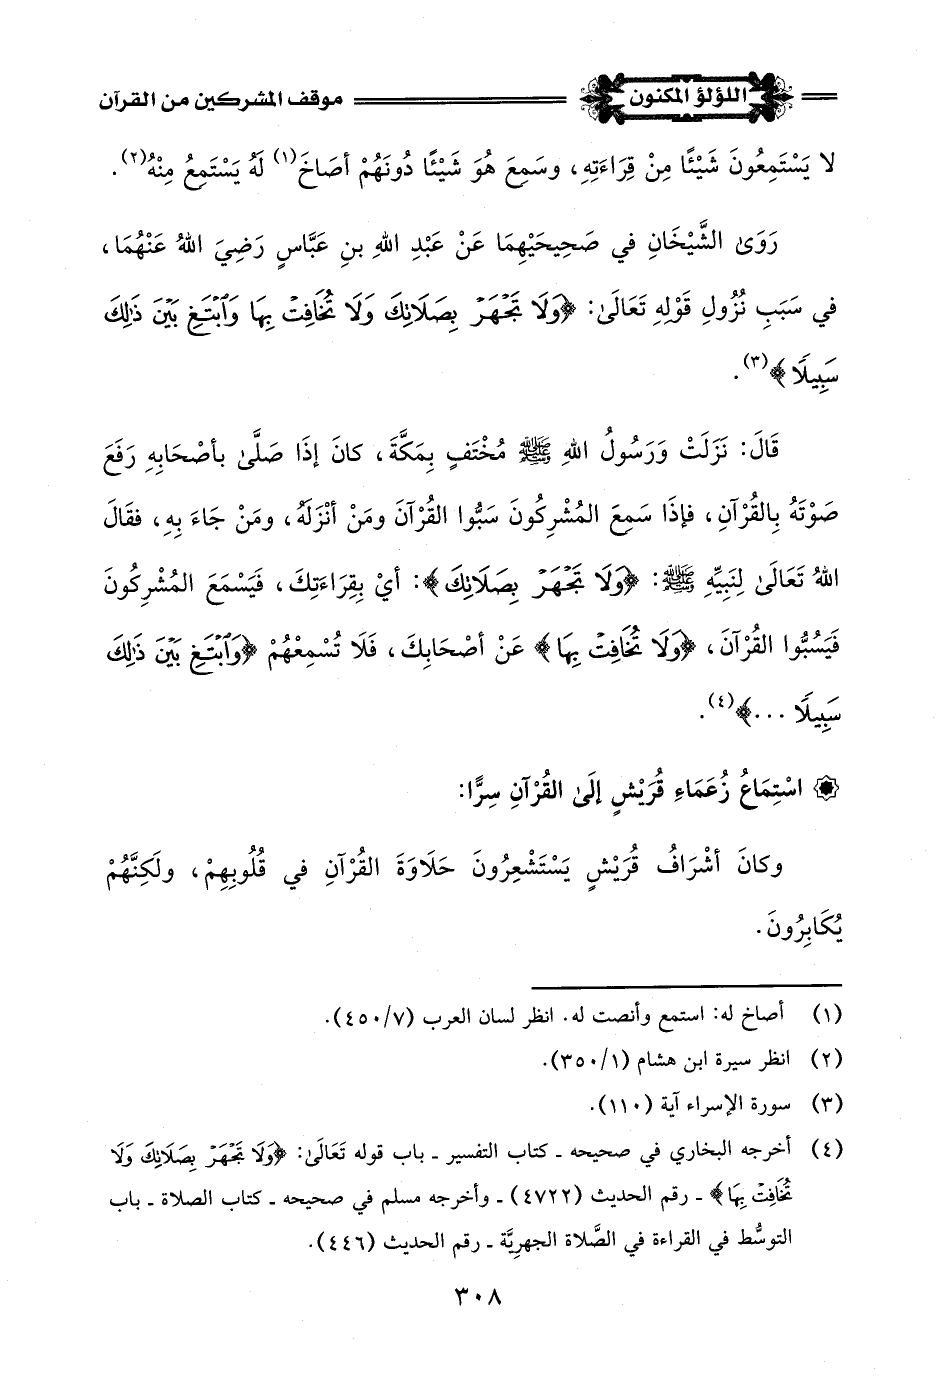 اللؤلؤ المكنون موقف المشركين من القرآن
لا يَسْتَمِعُونَ شَيْئًا مِنْ قِرَاءَتِهِ، وسَمِعَ هُوَ شَيْئًا دُونَهُمْ أصَاخَ(١) لَهُ يَسْتَمِعُ مِنْهُ(٢).
رَوَىٰ الشَّيْخَانِ في صَحِيحَيْهِمَا عَنْ عَبْدِ اللهِ بنِ عَبَّاسٍ رَضِيَ اللهُ عَنْهُمَا،
في سَبَبِ نُزُولِ قَوْلِهِ تَعَالَىٰ: ﴿وَلَا تَجْهَرْ بِصَلَاتِكَ وَلَا تُخَافِتْ بِهَا وَٱبْتَغِ بَيْنَ ذَٰلِكَ
سَبِيلًا﴾(٣).
قَالَ: نَزَلَتْ وَرَسُولُ اللهِ ﷺ مُخْتَفٍ بِمَكَّةَ، كانَ إذَا صَلَّىٰ بأصْحَابِهِ رَفَعَ
صَوْتَهُ بِالقُرْآنِ، فإذَا سَمِعَ المُشْرِكُونَ سَبُّوا القُرْآنَ ومَنْ أنْزَلَهُ، ومَنْ جَاءَ بِهِ، فقَالَ
اللهُ تَعَالَىٰ لِنَبِيِّهِ ﷺ: ﴿وَلَا تَجْهَرْ بِصَلَاتِكَ﴾: أيْ بِقِرَاءَتِكَ، فَيَسْمَعَ المُشْرِكُونَ
فَيَسُبُّوا القُرْآنَ، ﴿وَلَا تُخَافِتْ بِهَا﴾ عَنْ أصْحَابِكَ، فَلَا تُسْمِعْهُمْ ﴿وَٱبْتَغِ بَيْنَ ذَٰلِكَ
سَبِيلًا ...﴾(٤).
۞ اسْتِمَاعُ زُعَمَاءِ قُرَيْشٍ إلَىٰ القُرْآنِ سِرًّا:
وكانَ أشْرَافُ قُرَيْشٍ يَسْتَشْعِرُونَ حَلَاوَةَ القُرْآنِ في قُلُوبِهِمْ، ولَكِنَّهُمْ
يُكَابِرُونَ.
(١) أصاخ له: استمع وأنصت له. انظر لسان العرب (٤٥٠/٧).
(٢) انظر سيرة ابن هشام (٣٥٠/١).
(٣) سورة الإسراء آية (١١٠).
(٤) أخرجه البخاري في صحيحه ـ كتاب التفسير ـ باب قوله تَعَالَىٰ: ﴿وَلَا تَجْهَرْ بِصَلَاتِكَ وَلَا
تُخَافِتْ بِهَا﴾ ـ رقم الحديث (٤٧٢٢) ـ وأخرجه مسلم في صحيحه ـ كتاب الصلاة ـ باب
التوسُّط في القراءة في الصَّلاة الجهريَّة ـ رقم الحديث (٤٤٦).
٣٠٨